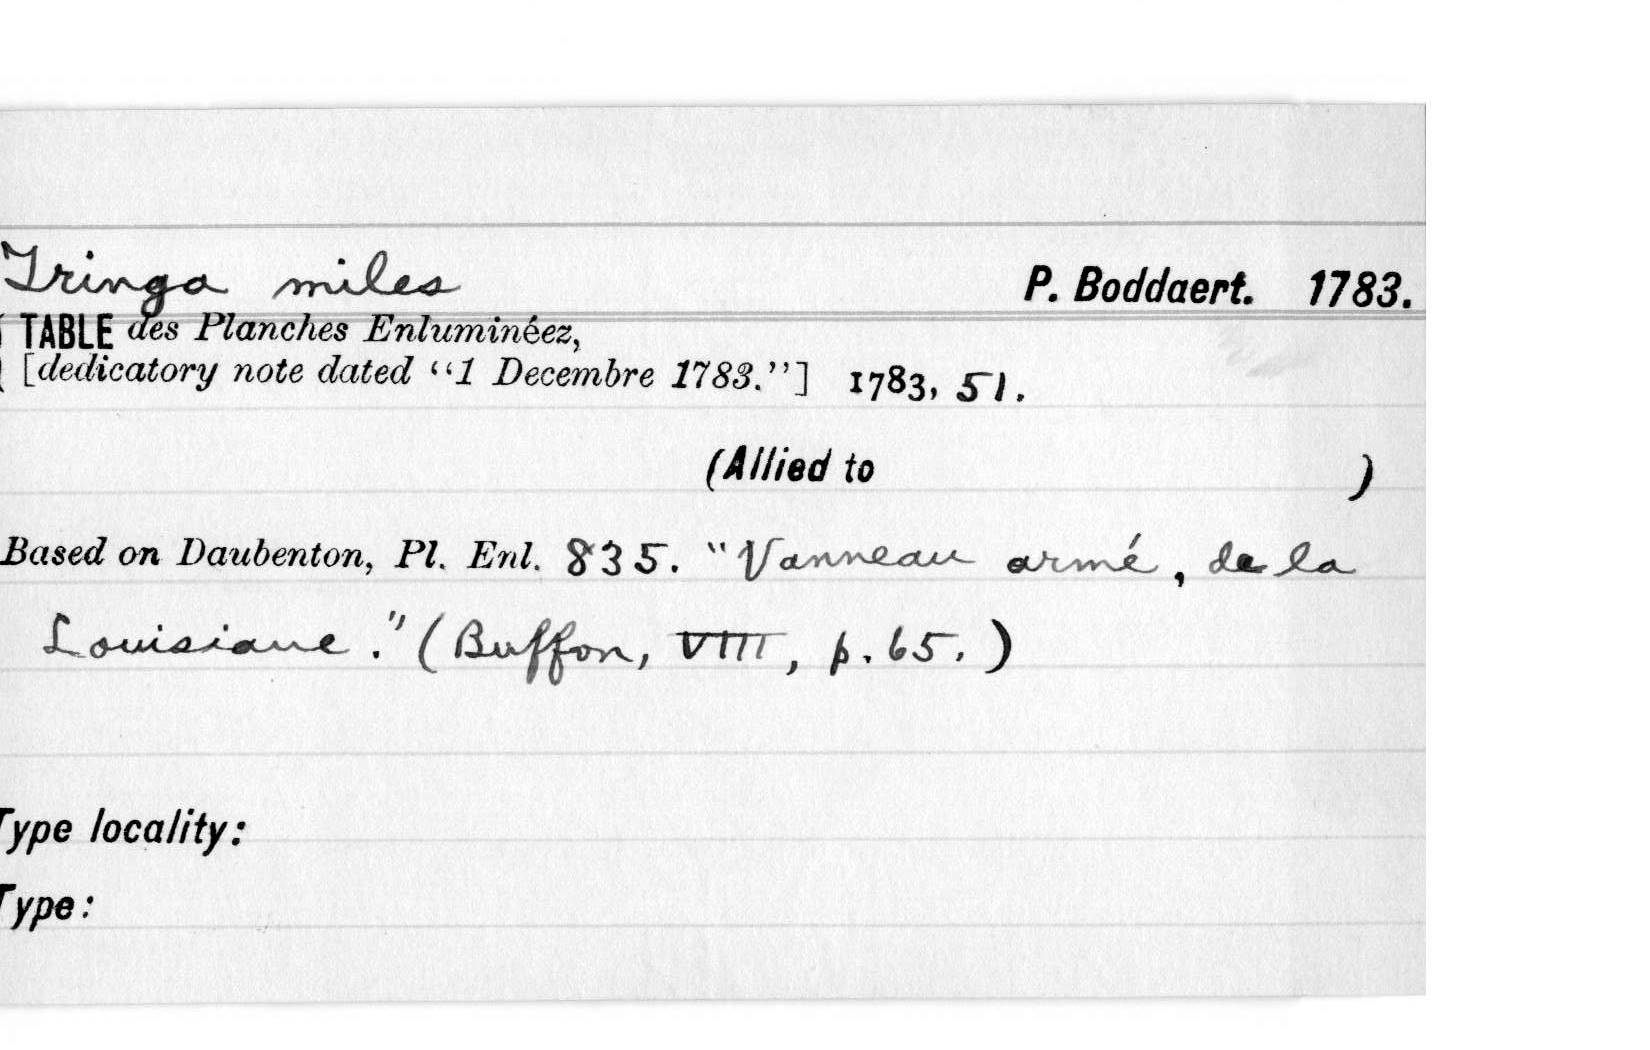 Tringa miles P. Boddaert. 1783.
TABLE des Planches Enluminéez,
[dedicatory note dated “1 Decembre 1783.”] 1783, 51.
(Allied to )
Based on Daubenton, Pl. Enl. 835. "Vanneau armé, de la
Louisiane." (Buffon, VIII, p. 65.)
Type locality:
Type: